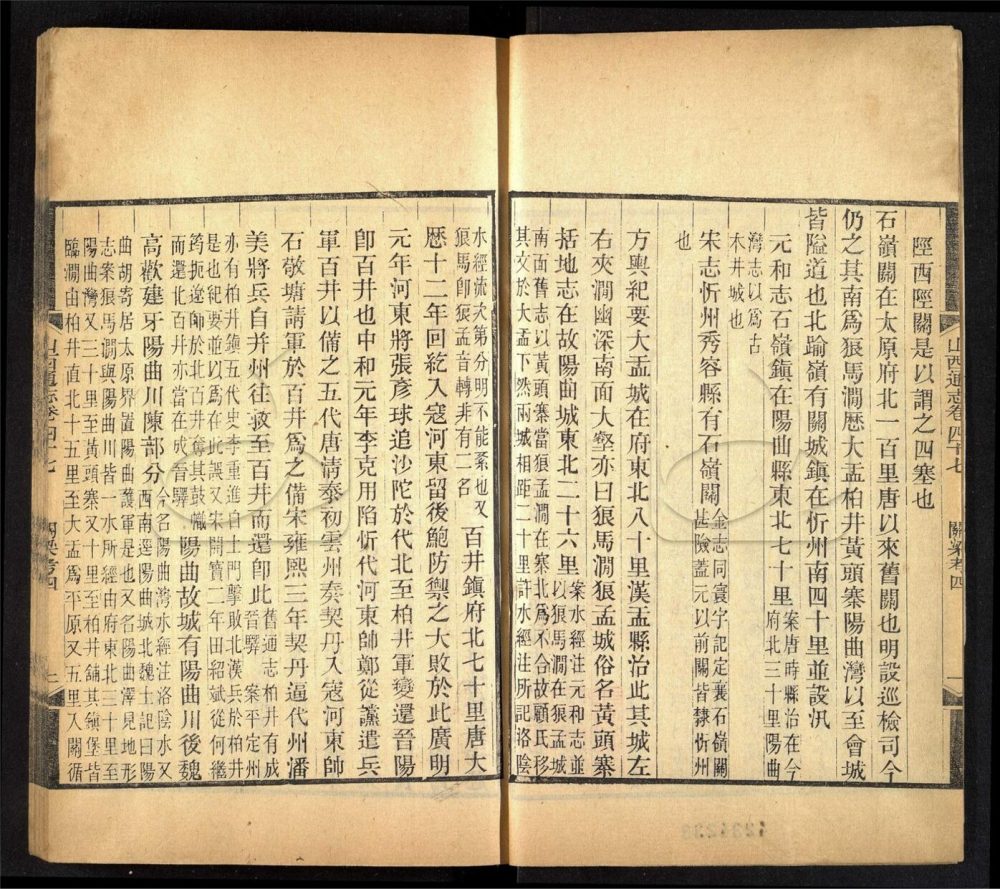 陘西陘關是以謂之四塞也
石嶺關在太原府北一百里唐以來舊關也明設巡檢司今
仍之其南爲狼馬澗歷大盂柏井黃頭寨陽曲灣以至會城
皆隘道也北踰嶺有關城鎮在忻州南四十里並設汛
元和志石嶺鎮在陽曲縣東北七十里
案唐時縣治在今
府北三十里陽曲
灣志以爲古
木井城也
宋志忻州秀容縣有石嶺關
金志同寰宇記定襄石嶺關
甚險蓋元以前關皆隸忻州
也
方輿紀要大盂城在府東北八十里漢盂縣治此其城左
右夾澗幽深南面大壑亦曰狼馬澗狼孟城俗名黃頭寨
括地志在故陽曲城東北二十六里
案水經注元和志並
以狼馬澗在狼孟城
南面舊志以黃頭寨當狼孟澗在寨北爲不合故顧氏移
其文於大盂下然兩城相距二十里許水經注所記洛陰
水經流次第分明不能紊也又
狼馬即狼孟音轉非有二名
百井鎮府北七十里唐大
歷十二年回紇入寇河東留後鮑防禦之大敗於此廣明
元年河東將張彥球追沙陀於代北至柏井軍變還晉陽
卽百井也中和元年李克用陷忻代河東師鄭從讜遣兵
軍百井以備之五代唐清泰初雲州奏契丹入寇河東帥
石敬塘請軍於百井爲之備宋雍熙三年契丹逼代州潘
美將兵自并州往救至百井而還卽此
舊通志柏井有成
晉驛 案平定州
亦有柏井鎮五代史李重進自土門擊敗北漢兵於柏井
是也紀要並以爲在此誤又宋開寶二年田紹斌從何繼
筠扼遼師於北百井奪其鼓幟
而還北百井亦當在成晉驛
陽曲故城有陽曲川後魏
高歡建牙陽曲川陳部分
今名陽曲灣水經注洛陰水又
西南逕陽曲城北魏土記曰陽
曲胡寄居太原界置陽曲護軍是也又名陽曲澤見地形
志案狼馬澗與陽曲川皆一水所經由府東北三十里至
陽曲灣又三十里至黃頭寨又十里至柏井鋪其鎮堡皆
臨澗由柏井直北十五里至大盂爲平原又五里入關循
山西通志卷四十七
關梁考四
一
山西通志卷四十七
關梁考四